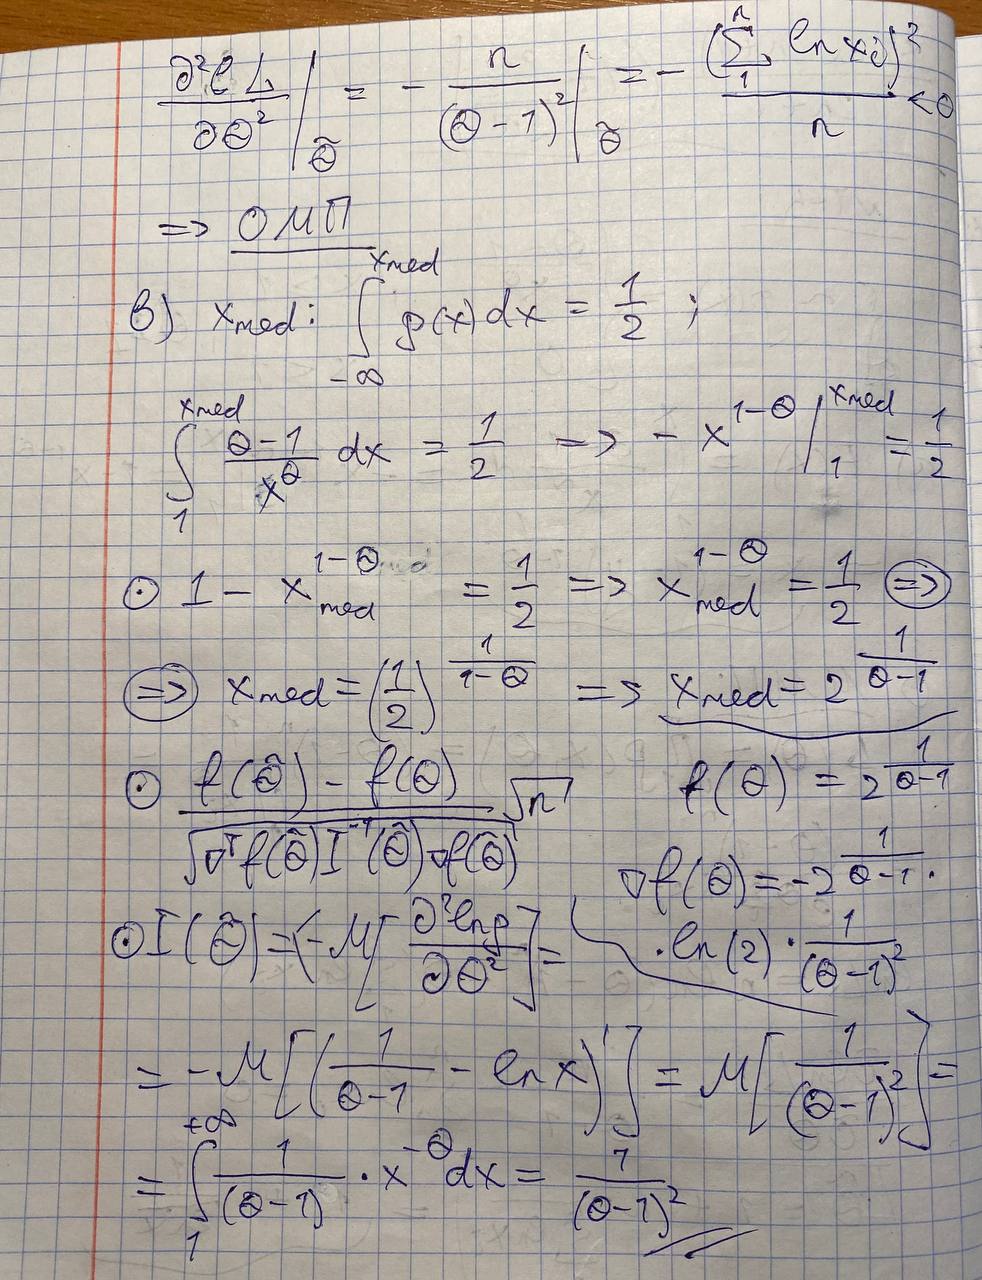 ∂²ℓL/∂θ² |_θ̃ = - n/(θ-1)² |_θ̃ = - (Σ₁ⁿ ln xᵢ)²/n < 0
=> ОМП
в) x_med: ∫_{-∞}^{x_med} p(x)dx = 1/2 ;
∫_1^{x_med} (θ-1)/x^θ dx = 1/2 => - x^{1-θ} |_1^{x_med} = 1/2
⊙ 1 - x_med^{1-θ} = 1/2 => x_med^{1-θ} = 1/2 =>
=> x_med = (1/2)^{1/(1-θ)} => x_med = 2^{1/(θ-1)}
⊙ (f(θ̃) - f(θ))/√(∇ᵀf(θ̃) I⁻¹(θ̃) ∇f(θ̃)) √n
f(θ) = 2^{1/(θ-1)}
∇f(θ) = -2^{1/(θ-1)} ·
· ln(2) · 1/(θ-1)²
⊙ I(θ̃) = (-M[∂²lnp/∂θ²] =
= -M[(1/(θ-1) - ln x)'] = M[1/(θ-1)²] =
= ∫_1^{+∞} 1/(θ-1) · x^{-θ} dx = 1/(θ-1)²